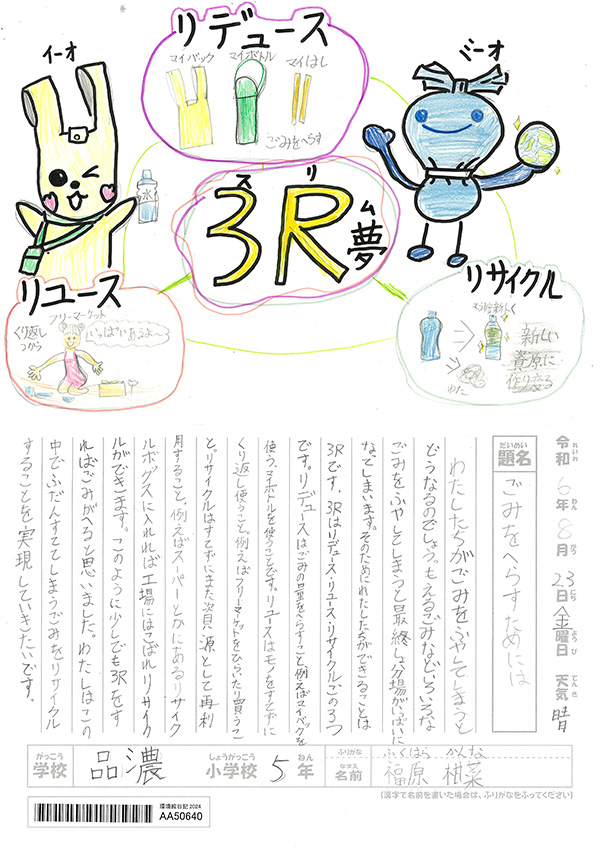 リデュース
マイバック
マイボトル
マイはし
ごみをへらす
イーオ
ミーオ
水
スリム
3R夢
リユース
フリーマーケット
くり返し
つかう
いっぱいあるよ〜
リサイクル
もう1度新しく
わた
新しい
資原に
作り変る
令和6年8月23日金曜日 天気 晴
れいわ ねん がつ にち ようび てんき
だいめい
題名
ごみをへらすためには
わたしたちがごみをふやしてしまうと
どうなるのでしょう。もえるごみなどいろいろな
ごみをふやしてしまうと最終しょ分場がいっぱいに
なてしまいます。そのためにわたしたちができることは
3Rです。3Rはリデュース・リユース・リサイクルこの3つ
です。リデュースはごみの量をへらすこと。例えばマイバックを
使う、マイボトルを使うことです。リユースはモノをすてずに
くり返し使うこと。例えばフリーマーケットをひらいたり買うこ
と。リサイクルはすてずにまた次貝・源として再利
用すること。例えばスーパーとかにあるリサイク
ルボックスに入れれば工場にはこばれリサイク
ルができます。このように少しでも3Rをす
ればごみがへると思いました。わたしはこの
中でふだんすててしまうごみをリサイクル
することを実現していきたいです。
がっこう しょうがっこう ねん
学校 品濃 小学校 5年
ふりがな ふくはら かんな
なまえ
名前 福原 柑菜
(漢字で名前を書いた場合は、ふりがなをふってください)
環境絵日記 2024
AA50640